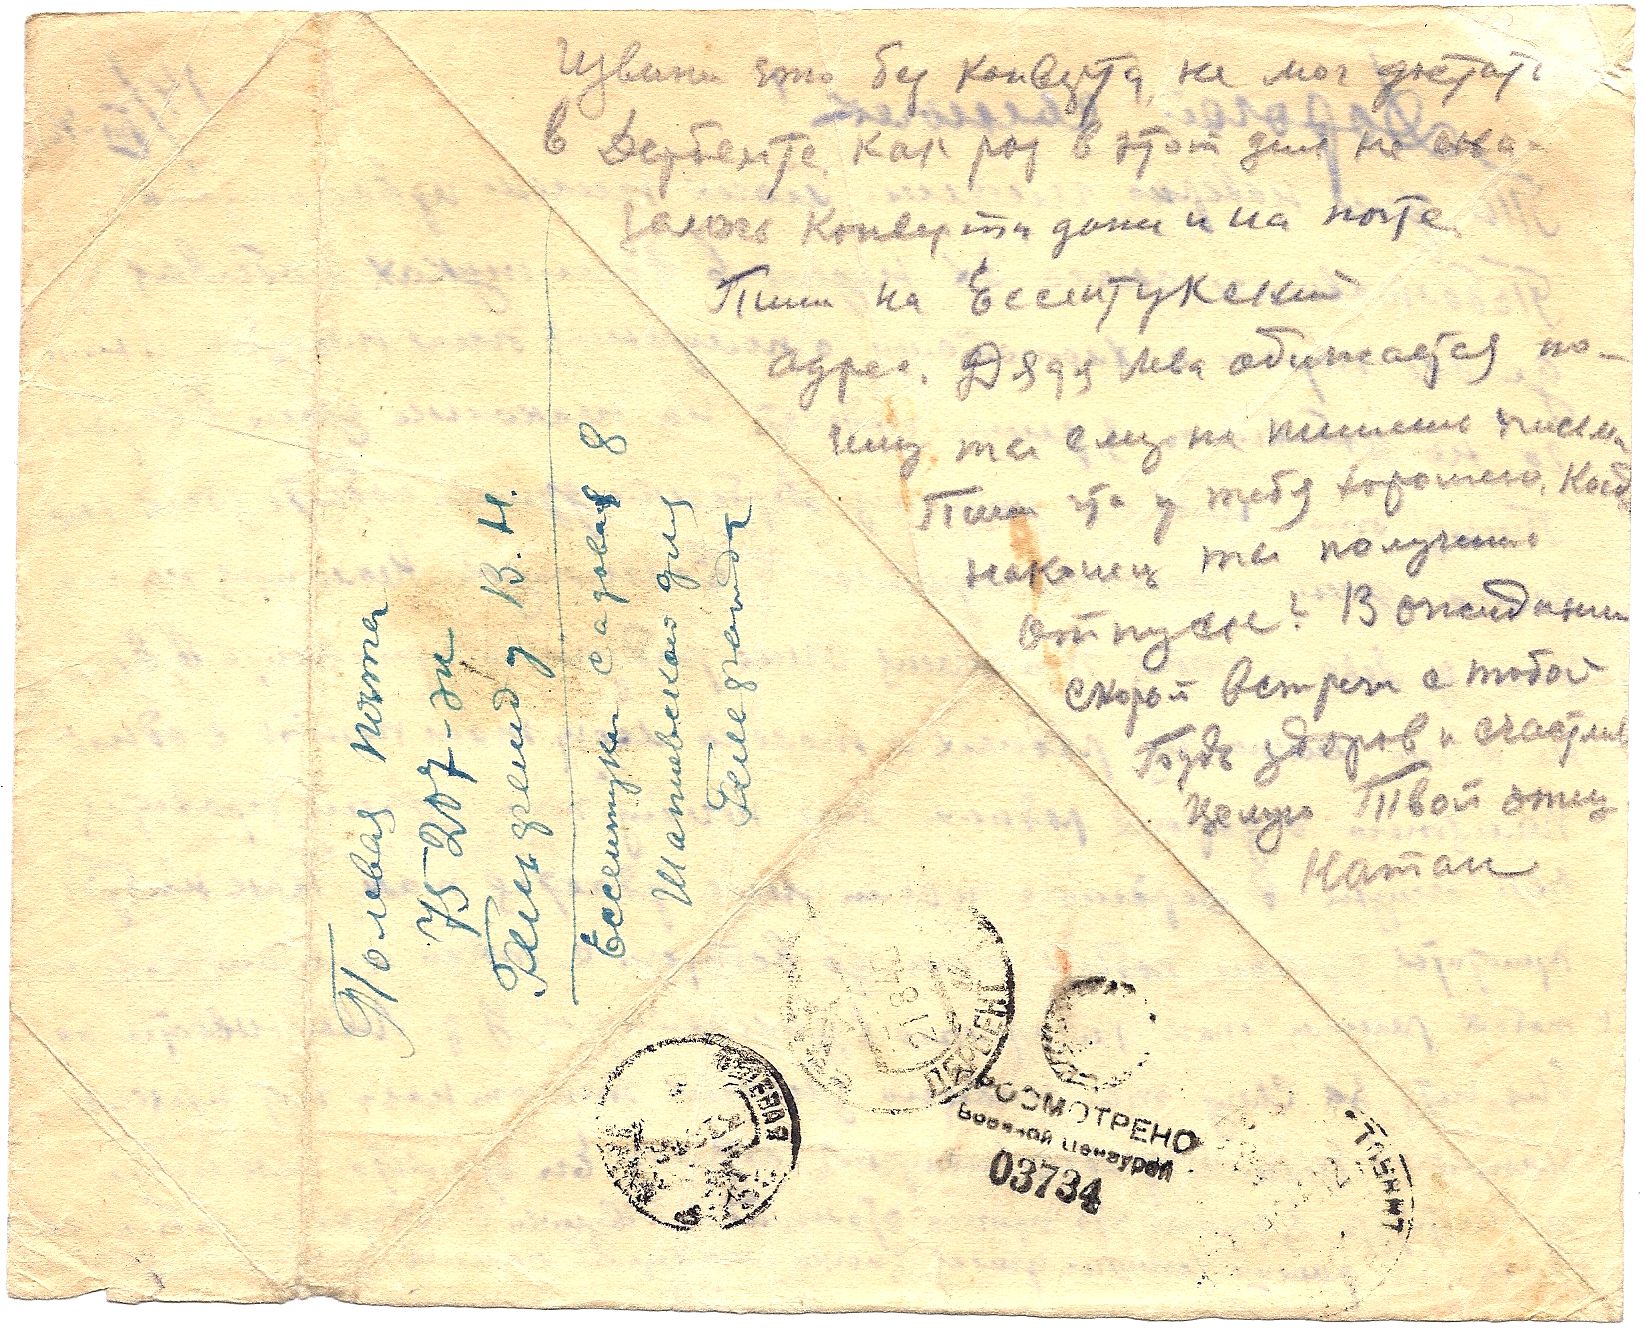 Извини что без конверта, не мог достать
в Дербенте. Как раз в этот день не ока-
залось конверта дома и на почте.
Пиши на Ессентукский
адрес. Дядя Лева обижается по-
чему ты ему не пишешь писем
Пиши что у тебя хорошего. Когда
наконец ты получишь
отпуск? В ожидании
скорой встречи с тобой
Будь здоров и счастлив
Целую Твой отец
Натан
Полевая почта
75207-
В. Н.
Ессентуки Садовая 8
для
21 8 45
ДЕРБЕНТ
ПОЛЕВАЯ
ПРОСМОТРЕНО
Военной Цензурой
03734